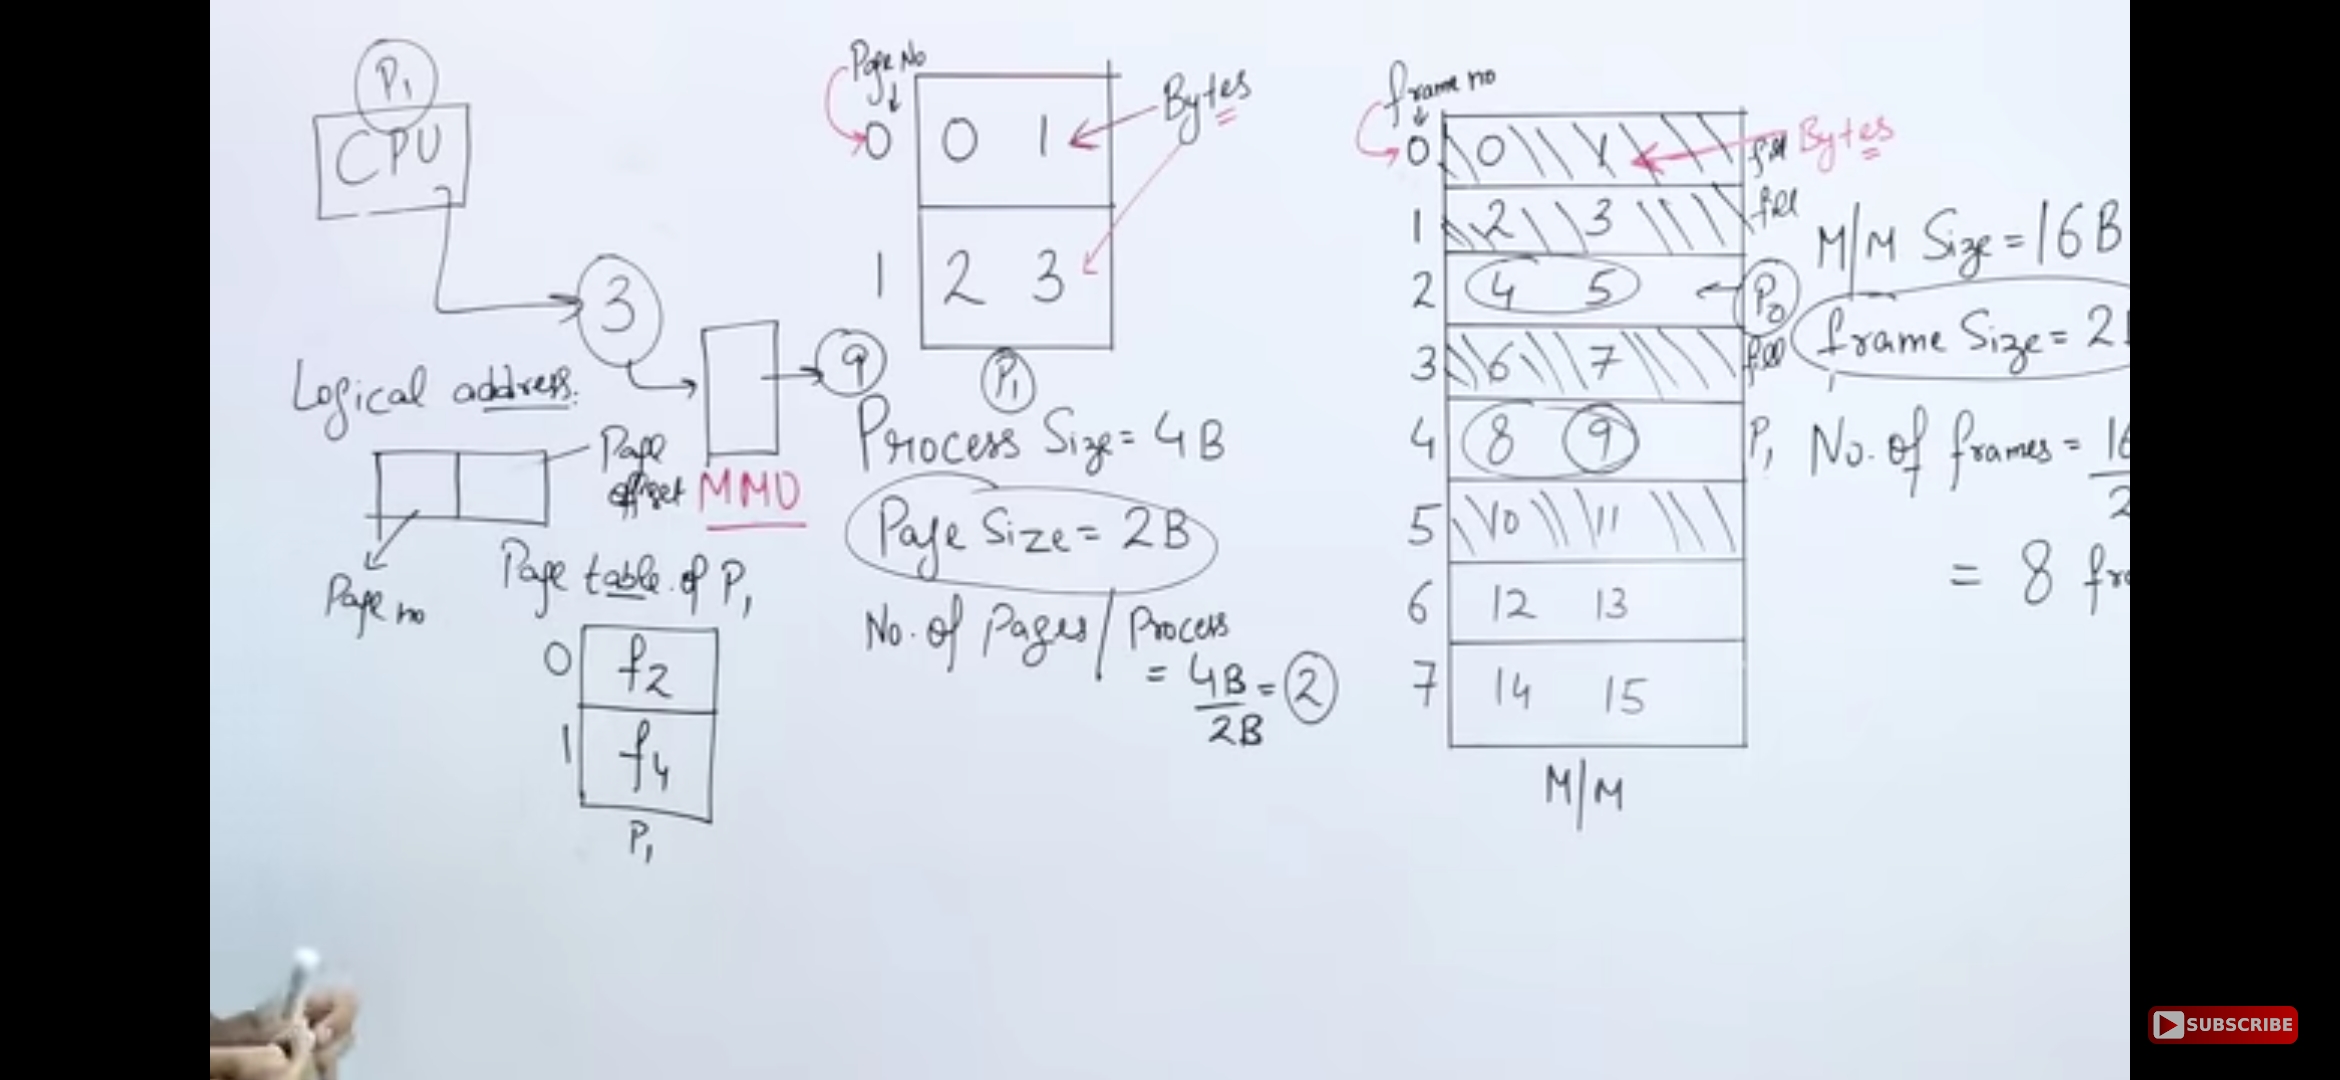 P1
CPU
3
Logical address.
Page offset
Page no
9
MMU
Page table of P1
0 f2
1 f4
P1
Page No
0 0 1
1 2 3
Bytes
P1
Process Size = 4B
Page Size = 2B
No. of Pages / Process
= 4B = 2
2B
frame no
0 0 1 fill
Bytes
1 2 3 fill
2 4 5 P0
3 6 7 fill
4 8 9 P1
5 10 11
6 12 13
7 14 15
M/M
M/M Size = 16B
frame Size = 2
No. of frames = 16
2
= 8 fr
SUBSCRIBE